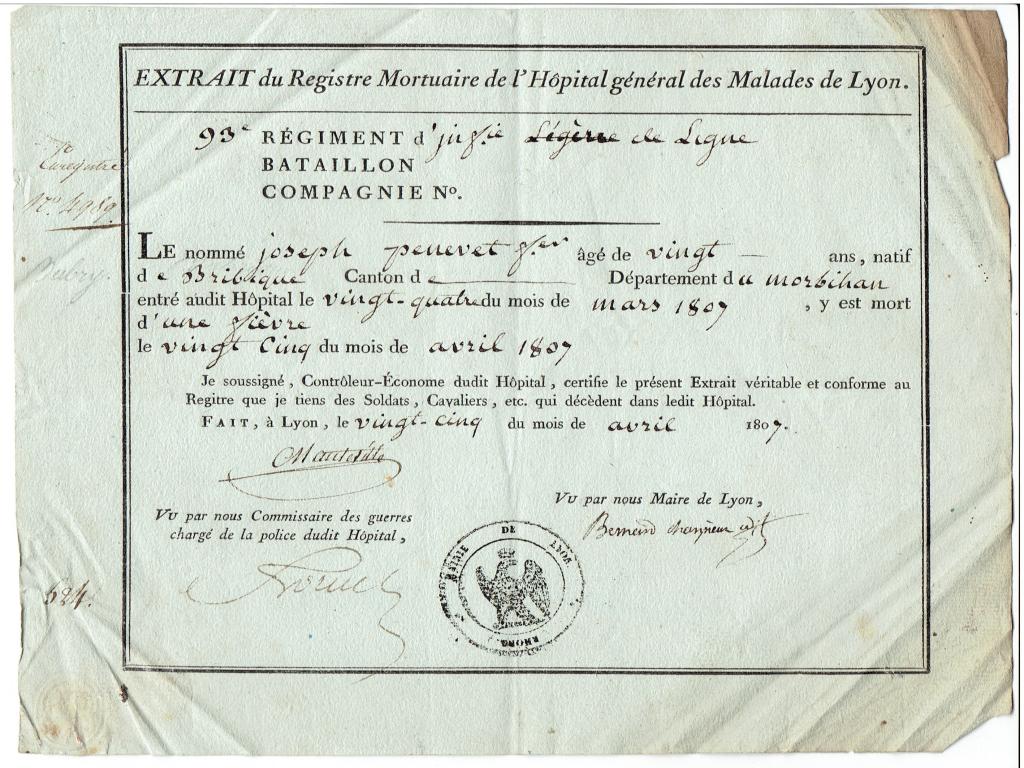 EXTRAIT du Registre Mortuaire de l'Hôpital général des Malades de Lyon.
93e RÉGIMENT d'inf.ie Légère de Ligne
BATAILLON
COMPAGNIE No.
Enregistré
No. 4989.
LE nommé joseph penevet f.er âgé de vingt — ans, natif
de Bribique Canton de — Département du morbihan
entré audit Hôpital le vingt-quatre du mois de mars 1807, y est mort
d'une fièvre
le vingt Cinq du mois de avril 1807
Je soussigné, Contrôleur-Économe dudit Hôpital, certifie le présent Extrait véritable et conforme au
Regitre que je tiens des Soldats, Cavaliers, etc. qui décèdent dans ledit Hôpital.
FAIT, à Lyon, le vingt-cinq du mois de avril 1807.
Vu par nous Maire de Lyon,
Vu par nous Commissaire des guerres
chargé de la police dudit Hôpital,
Bernard charpieux adjt
MAIRIE DE LYON
RHONE
624.